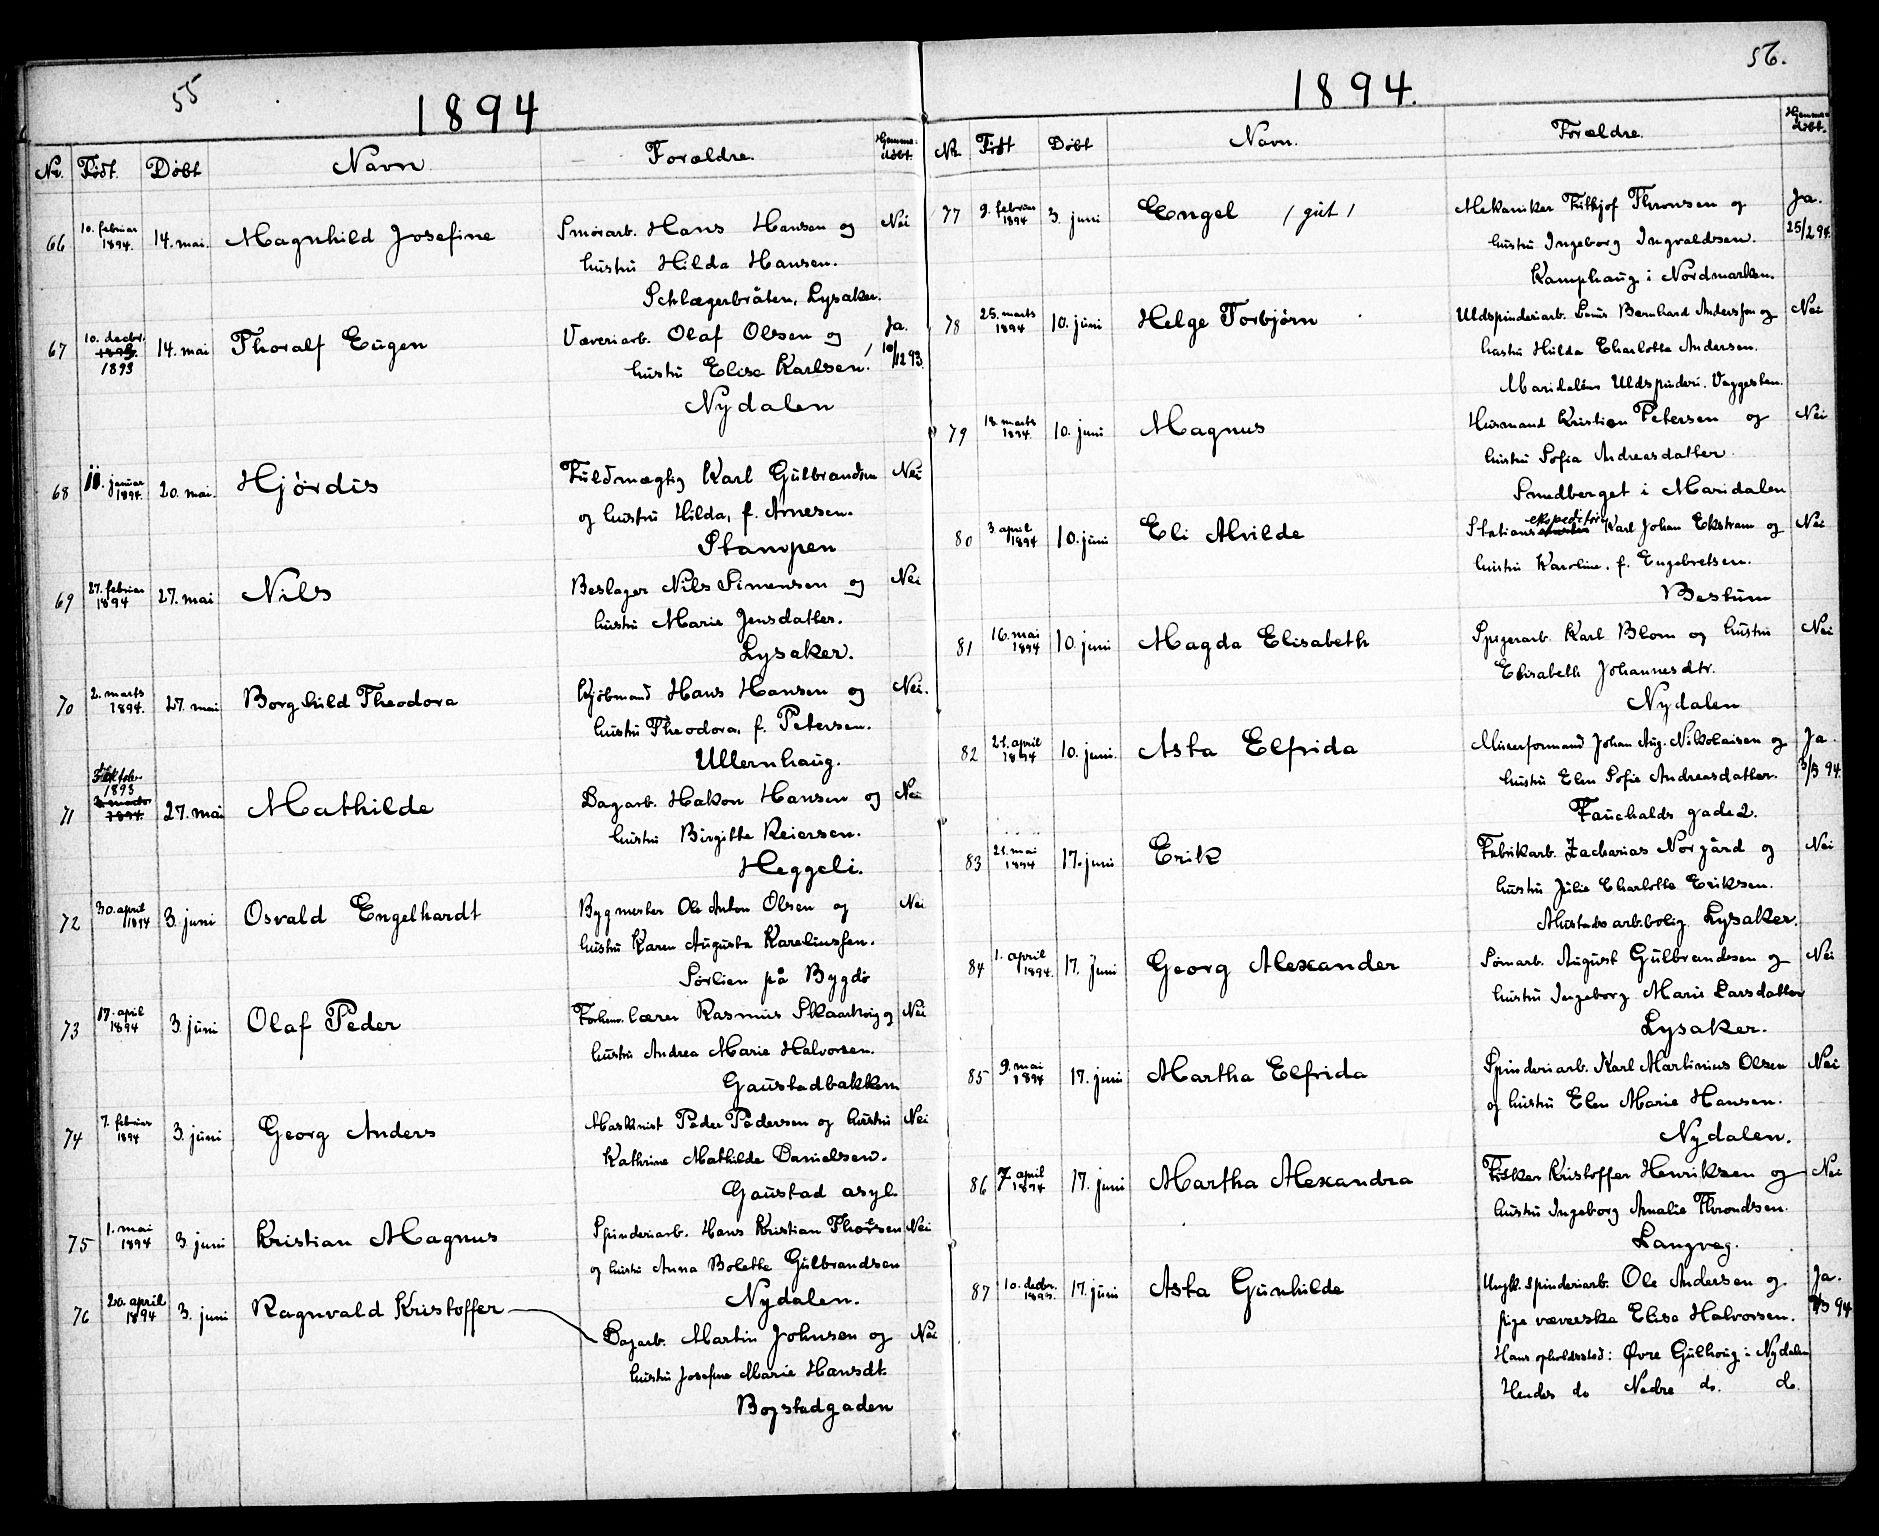 55
1894
Nr. Født. Døbt Navn Forældre. Hjemme-døbt.
66 10. februar 1894. 14. mai. Magnhild Josefine Smørarb. Hans Hansen og Nei
hustru Hilda Hansen.
Schlægerbråten, Lysaker.
67 10. decbr. 1893 14. mai Thoralf Eugen Væveriarb. Olaf Olsen og Ja.
hustru Elise Karlsen. 10/12 93.
Nydalen
68 11. januar 1894. 20. mai. Hjørdis Fuldmægtig Karl Gulbrandsen Nei
og hustru Hilda, f. Arnesen.
Stampen
69 27. februar 1894 27. mai Nils Beslager Nils Simensen og Nei
hustru Marie Jensdatter.
Lysaker.
70 2. marts 1894. 27. mai Borghild Theodora Kjøbmand Hans Hansen og Nei.
hustru Theodora, f. Petersen.
Ullernhaug.
71 oktober 1893 2. marts 1894. 27. mai Mathilde Dagarb. Hakon Hansen og Nei
hustru Birgitte Reiersen.
Heggeli.
72 30. april 1894 3. juni Osvald Engelhardt Bygmester Ole Anton Olsen og Nei
hustru Karen Augusta Kareliussen.
Sørlien på Bygdø
73 17. april 1894 3. juni Olaf Peder lærer Rasmus Skaarhoig og Nei
hustru Andrea Marie Halvorsen.
Gaustadbakken
74 7. februar 1894 3. juni Georg Anders Maskinist Peder Pedersen og hustru Nei
Kathrine Mathilde Danielsen.
Gaustad asyl.
75 1. mai 1894 3. juni Kristian Magnus Spinderiarb. Hans Kristian Thorsen Nei
og hustru Anna Bolette Gulbrandsen
Nydalen.
76 20. april 1894 3. juni Ragnvald Kristoffer Dagarb. Martin Johnsen og Nei
hustru Josefine Marie Hansdt.
Bogstadgaden
56.
1894.
Nr. Født Døbt Navn. Forældre. Hjemme-døbt.
77 9. februar 1894 3. juni Engel / gut / Mekaniker Fritjof Thronsen og Ja.
hustru Ingeborg Ingvaldsen. 25/2 94.
Kamphaug i Nordmarken.
78 25. marts 1894 10. juni Helge Torbjørn Uldspinderiarb. Bernhard Anderssen og Nei
hustru Hulda Charlotte Andersen.
Maridalens Uldspinderi. Vaggesten.
79 18. marts 1894. 10. juni Magnus Husmand Kristian Petersen og Nei
hustru Sofia Andreasdatter.
Smedberget i Maridalen
80 3. april 1894 10. juni Eli Alvilde Stationsekspeditør Karl Johan Ekstrøm og Nei
hustru Karoline, f. Engebretsen.
Bestum
81 16. mai 1894 10. juni Magda Elisabeth Spigerarb. Karl Blom og hustru Nei
Elisabeth Johannesdtr.
Nydalen
82 21. april 1894 10. juni. Asta Elfrida Murerformand Johan Aug. Nikolaisen og Ja.
hustru Elen Sofie Andreasdatter. 5/5 94.
Fauchalds gade 2.
83 21. mai 1894 17. juni Erik Fabrikarb. Zacharias Norgård og Nei
hustru Julie Charlotte Eriksen.
Mustads arb.bolig. Lysaker.
84 1. april 1894. 17. juni Georg Alexander Sømarb. August Gulbrandsen og Nei
hustru Ingeborg Marie Larsdatter
Lysaker.
85 9. mai 1894 17. juni Martha Elfrida Spinderiarb. Karl Martinius Olsen Nei
og hustru Elen Marie Hansen.
Nydalen.
86 7. april 1894 17. juni Martha Alexandra Fisker Kristoffer Henriksen og Nei
hustru Ingeborg Amalie Throndsen.
Langveg.
87 10. decbr. 1893. 17. juni Asta Gunhilde Ungk. Spinderiarb. Ole Andersen og Ja.
pige væverske Elise Halvorsen. /3 94
Hans opholdssted: Øvre Gulhaug i Nydalen
Hendes do Nedre do. do.